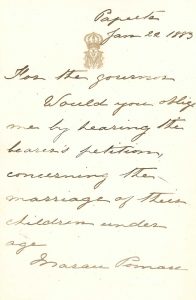 Papeete
Jan 22 1883
For the governor
Would you oblige
me by hearing the
bearer's petition,
concerning the
marriage of their
children under
age
Marau Pomare